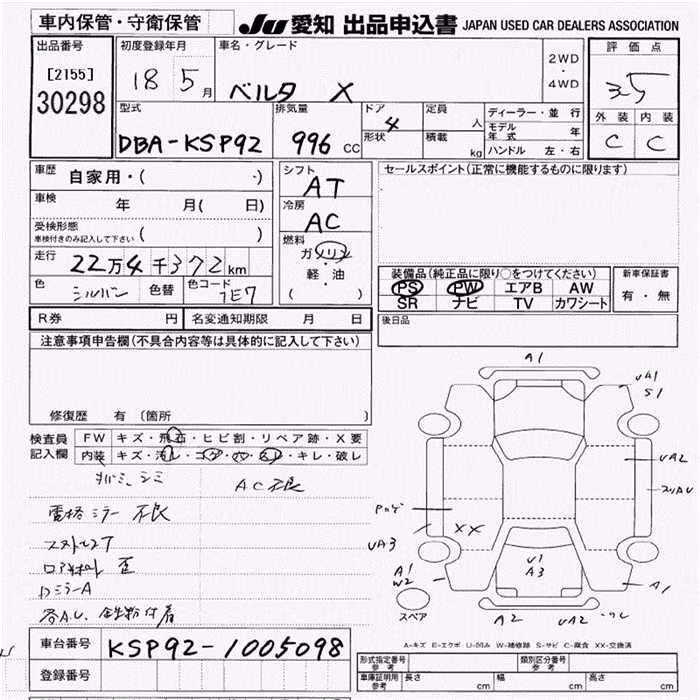 車内保管・守衛保管
JU 愛知 出品申込書 JAPAN USED CAR DEALERS ASSOCIATION
出品番号
[2155]
30298
初度登録年月
18 5月
車名・グレード
ベルタ X
2WD
・
4WD
評価点
3.5
外装 内装
C C
型式
DBA-KSP92
排気量
996 CC
ドア
4
形状
定員
人
積載
kg
ディーラー・並行
モデル年式 年
ハンドル 左・右
車歴
自家用・( ・)
車検
年 月( 日)
受検形態
車検付きのみ記入して下さい ( )
走行
22万4千372km
色
シルバー
色替
色コード
1E7
シフト
AT
冷房
AC
燃料
ガソリン
・
軽・油
( )
セールスポイント(正常に機能するものに限ります)
装備品(純正品に限り○をつけてください)
PS PW エアB AW
SR ナビ TV カワシート
新車保証書
有・無
R券 円 名変通知期限 月 日
後日品
注意事項申告欄(不具合内容等は具体的に記入して下さい)
修復歴 有 (箇所 )
検査員
記入欄
FW キズ・飛石・ヒビ割・リペア跡・X要
内装 キズ・汚レ・コゲ・穴・スレ・キレ・破レ
AC不良
電格ミラー不良
リアサポート 歪
DミラーA
各AU. 鉄粉付着
A1
UA1
S1
UA2
XX
UA3
A1
W2
U1
A3
A1
A2 UA2
スペア
A-キズ E-エクボ U-凹み W-補修跡 S-サビ C-腐食 XX-交換済
車台番号
KSP92-1005098
登録番号
形式指定番号
参考
類別区分番号
参考
車庫証明用
参考
長さ cm 幅 cm 高さ cm